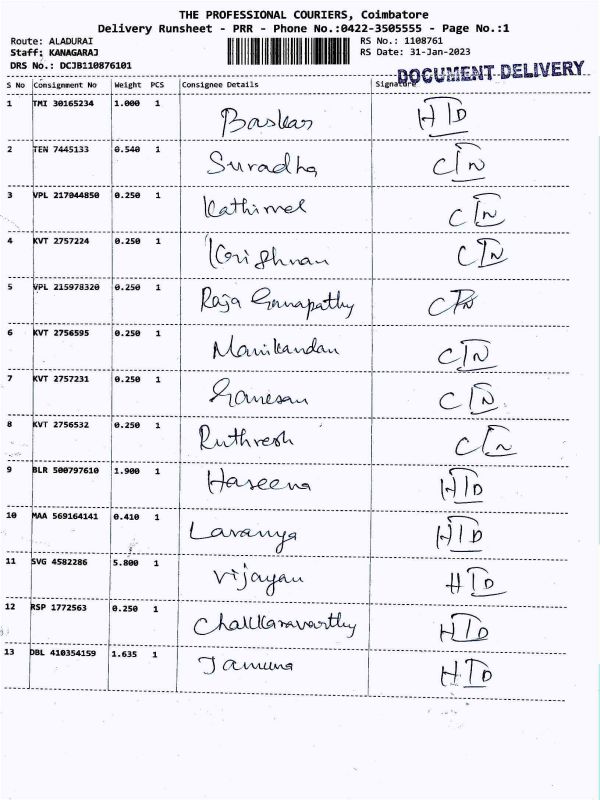 THE PROFESSIONAL COURIERS, Coimbatore
Delivery Runsheet - PRR - Phone No.:0422-3505555 - Page No.:1
Route: ALADURAI RS No.: 1108761
Staff: KANAGARAJ RS Date: 31-Jan-2023
DRS No.: DCJB110876101
DOCUMENT DELIVERY
S No Consignment No Weight PCS Consignee Details Signature
1 TMI 30165234 1.000 1 Baskar HTD
2 TEN 7445133 0.540 1 Suradha CTN
3 VPL 217044850 0.250 1 Kathirvel CTN
4 KVT 2757224 0.250 1 Krishnan CTN
5 VPL 215978320 0.250 1 Raja Ganapathy CTN
6 KVT 2756595 0.250 1 Manikandan CTN
7 KVT 2757231 0.250 1 Ganesan CTN
8 KVT 2756532 0.250 1 Ruthresh CTN
9 BLR 500797610 1.900 1 Haseena HTD
10 MAA 569164141 0.410 1 Lavanya HTD
11 SVG 4582286 5.800 1 Vijayan HTD
12 RSP 1772563 0.250 1 Chakkaravarthy HTD
13 DBL 410354159 1.635 1 Jamuna HTD